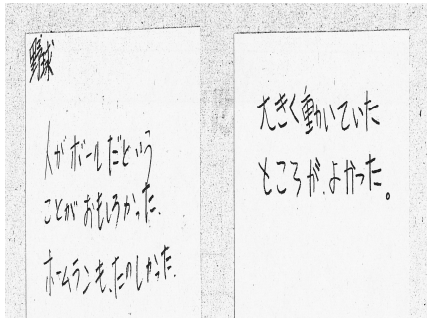 野球
人がボールだという
ことがおもしろかった.
ホームランも、たのしかった.
大きく動いていた
ところが、よかった。